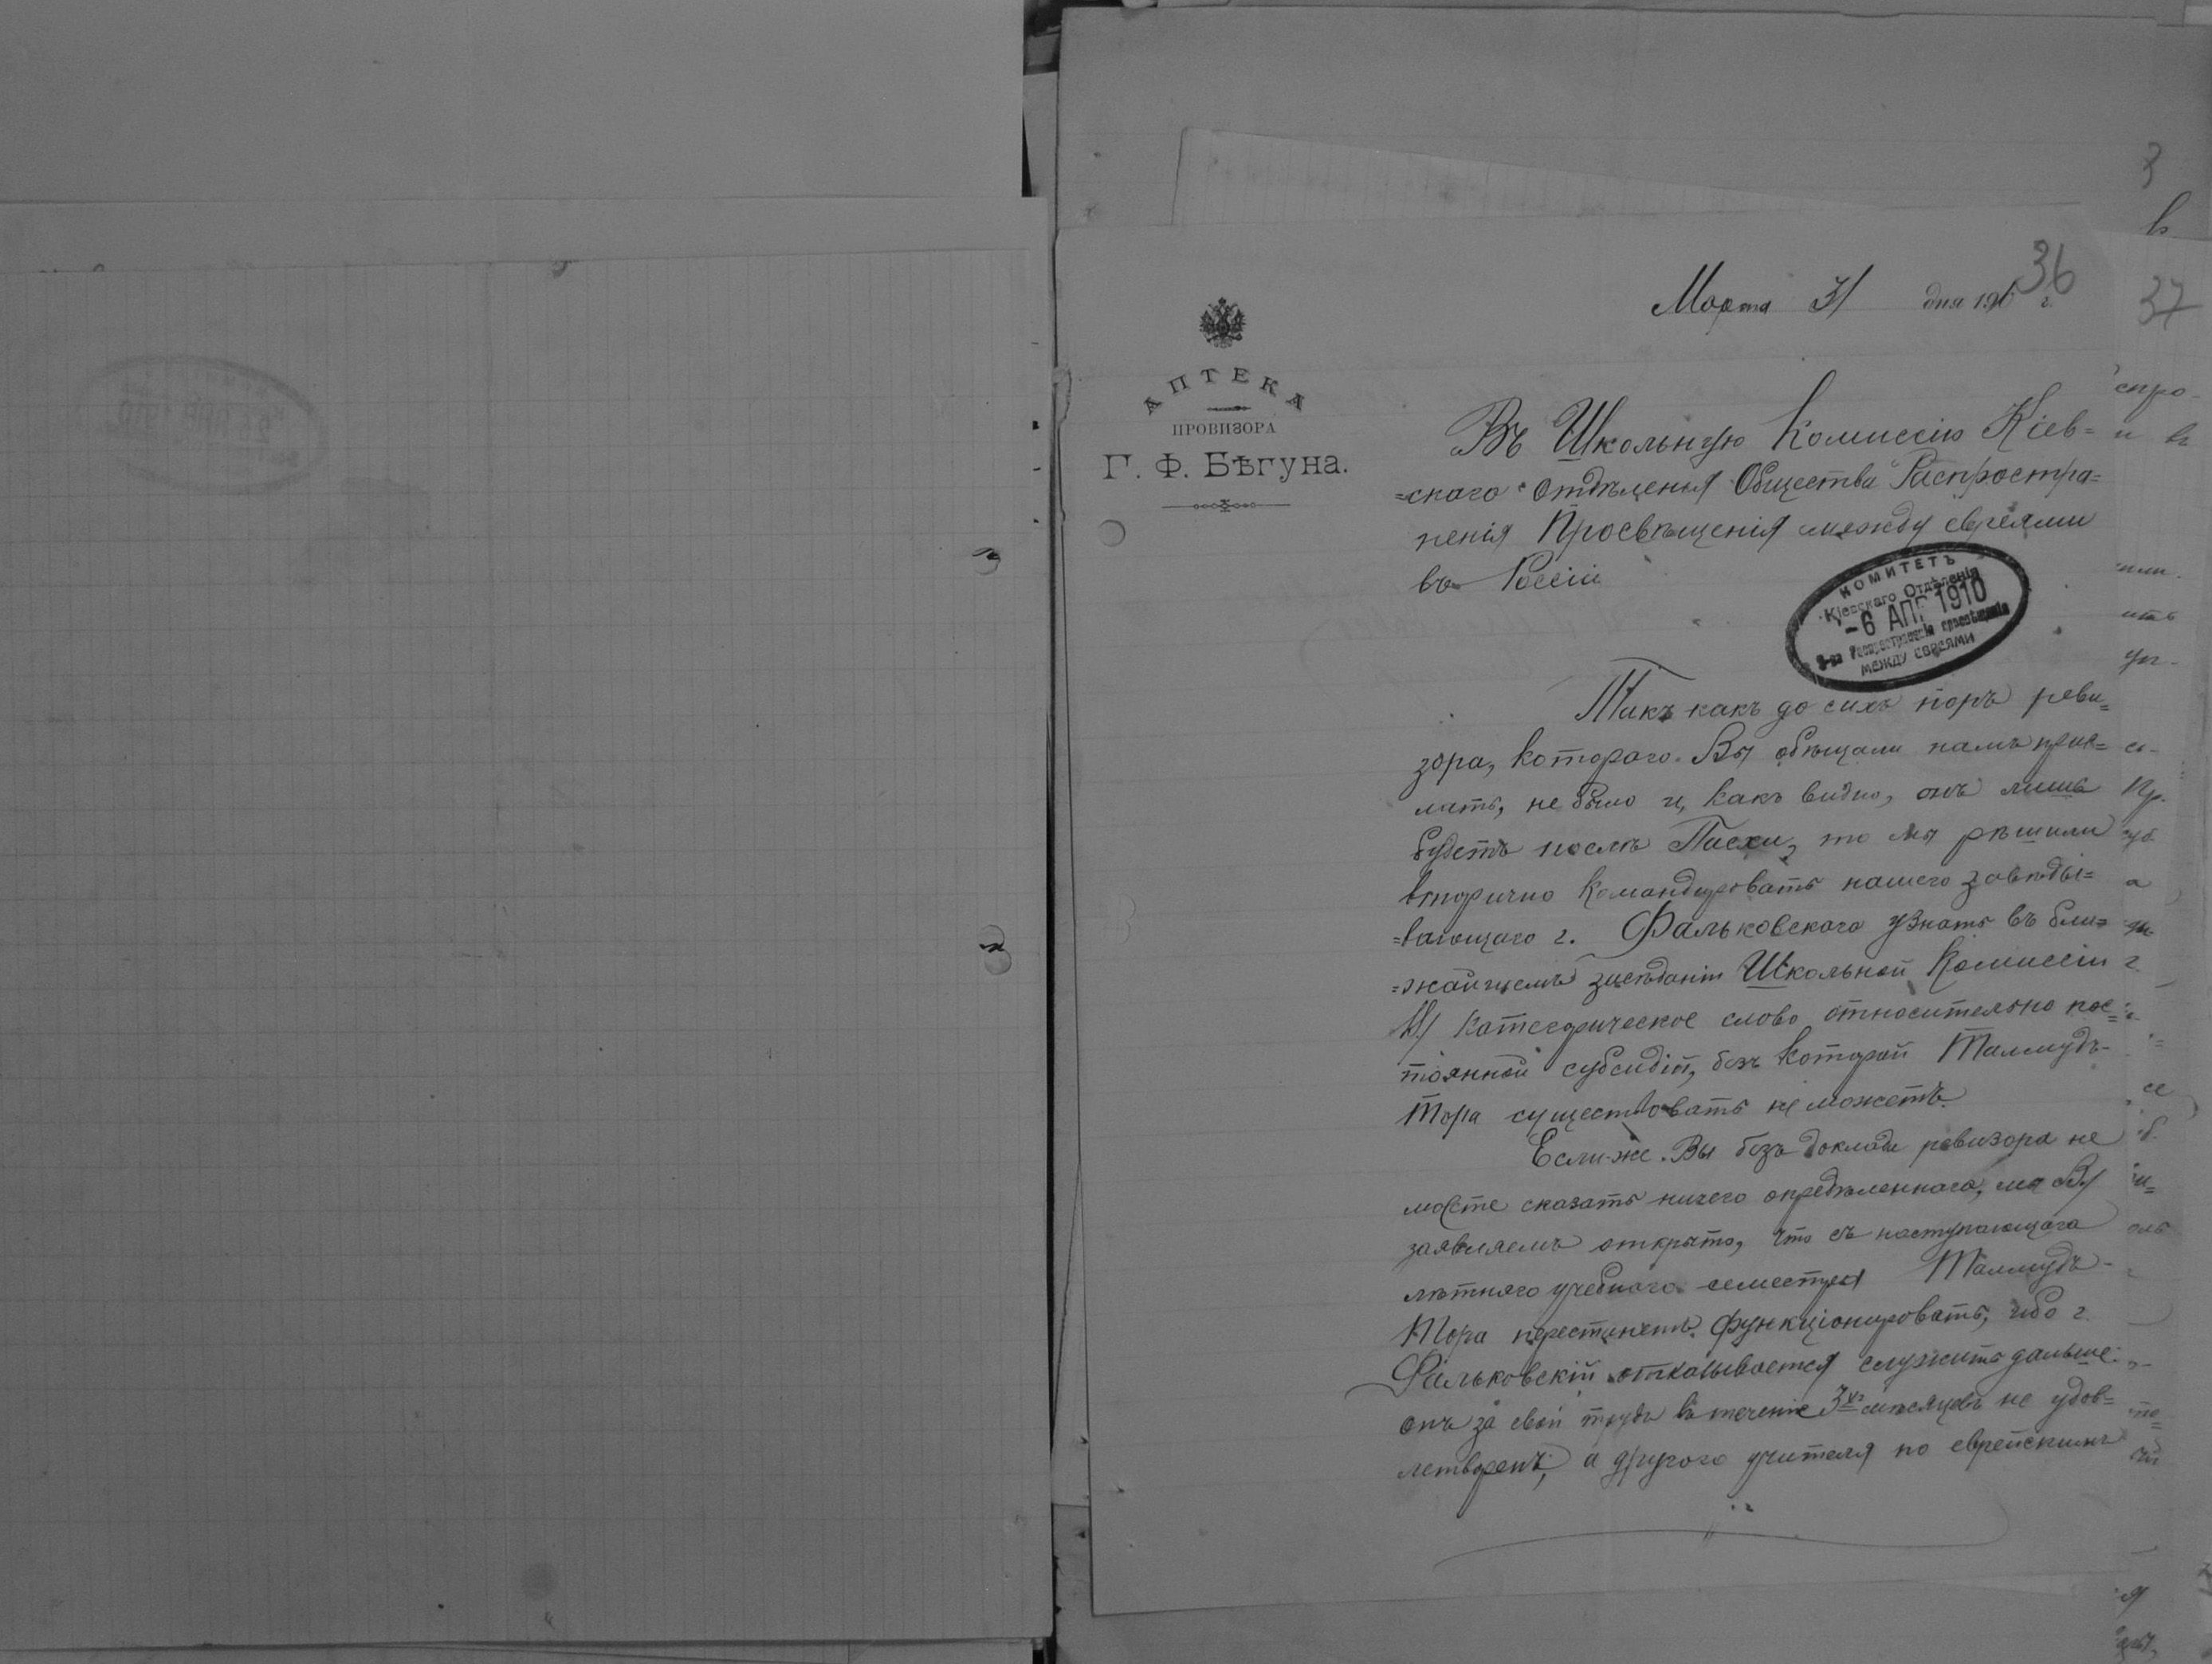 36
Марта 31 дня 1910 г.
37
АПТЕКА
ПРОВИЗОРА
Г. Ф. Бѣгуна.
Въ Школьную Комиссію Кіев=
=скаго Отдѣленія Общества Распростра=
ненія Просвѣщенія между евреями
въ Россіи
КОМИТЕТЪ
Кіевскаго Отдѣленія
-6 АПР 1910
О-ва Распространенія просвѣщенія
МЕЖДУ ЕВРЕЯМИ
Такъ какъ до сихъ поръ реви=
зора, котораго Вы обѣщали намъ прис=
лать, не было и, какъ видно, онъ лишь
будетъ послѣ Пасхи, то мы рѣшили
вторично командировать нашего завѣды=
=вающаго г. Фальковскаго узнать въ бли=
=жайшемъ засѣданіи Школьной Комиссіи
категорическое слово относительно пос=
тоянной субсидіи, безъ которой Талмудъ-
Тора существовать не можетъ.
Если-же Вы безъ доклада ревизора не
можете сказать ничего опредѣленнаго, мы Вы
заявляемъ открыто, что съ наступающаго
лѣтняго учебнаго семестра Талмудъ-
Тора перестанетъ функціонировать, ибо г.
Фальковскій отказывается служить дальше:
онъ за свой трудъ въ теченіе 3хъ мѣсяцевъ не удов=
летворенъ, а другого учителя по еврейскимъ